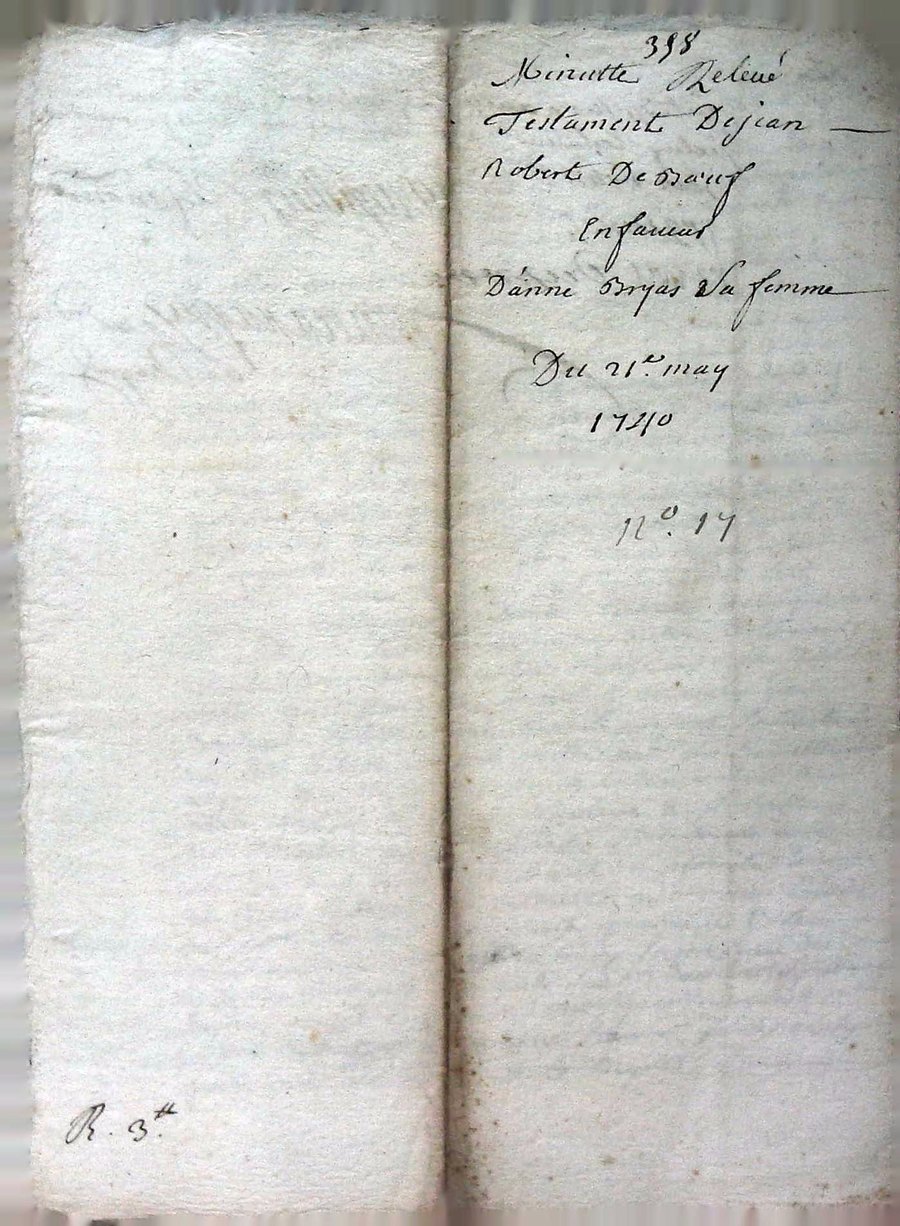 398
Minutte Relevé
Testament Dejean
Robert De Bœuf
En faveur
D'anne Bryas Sa femme
Du 21e. may
1740
No. 17
R. 3#